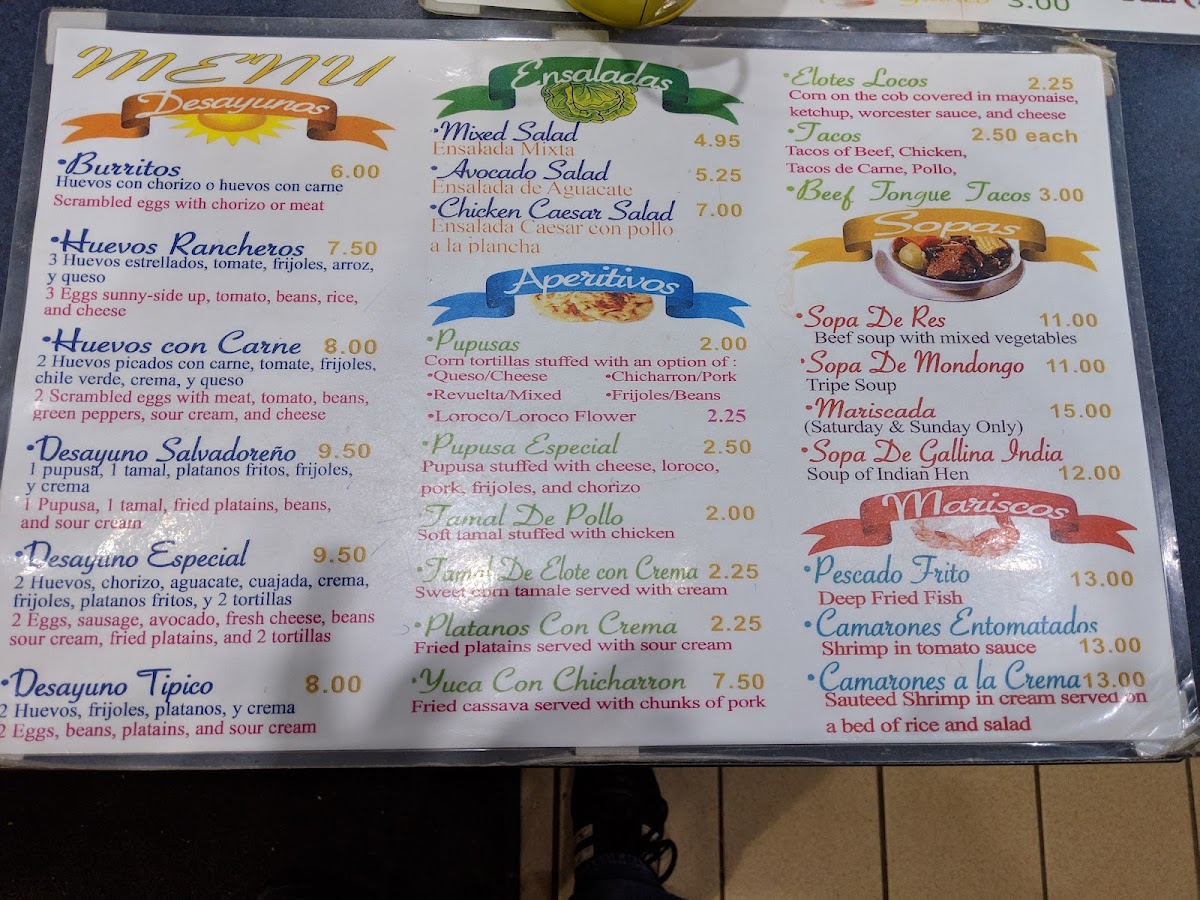 3.00
MENU
Desayunos
•Burritos 6.00
Huevos con chorizo o huevos con carne
Scrambled eggs with chorizo or meat
•Huevos Rancheros 7.50
3 Huevos estrellados, tomate, frijoles, arroz,
y queso
3 Eggs sunny-side up, tomato, beans, rice,
and cheese
•Huevos con Carne 8.00
2 Huevos picados con carne, tomate, frijoles,
chile verde, crema, y queso
2 Scrambled eggs with meat, tomato, beans,
green peppers, sour cream, and cheese
•Desayuno Salvadoreño 9.50
1 pupusa, 1 tamal, platanos fritos, frijoles,
y crema
1 Pupusa, 1 tamal, fried platains, beans,
and sour cream
•Desayuno Especial 9.50
2 Huevos, chorizo, aguacate, cuajada, crema,
frijoles, platanos fritos, y 2 tortillas
2 Eggs, sausage, avocado, fresh cheese, beans
sour cream, fried platains, and 2 tortillas
•Desayuno Tipico 8.00
2 Huevos, frijoles, platanos, y crema
2 Eggs, beans, platains, and sour cream
Ensaladas
•Mixed Salad 4.95
Ensalada Mixta
•Avocado Salad 5.25
Ensalada de Aguacate
•Chicken Caesar Salad 7.00
Ensalada Caesar con pollo
a la plancha
Aperitivos
•Pupusas 2.00
Corn tortillas stuffed with an option of :
•Queso/Cheese •Chicharron/Pork
•Revuelta/Mixed •Frijoles/Beans
•Loroco/Loroco Flower 2.25
•Pupusa Especial 2.50
Pupusa stuffed with cheese, loroco,
pork, frijoles, and chorizo
•Tamal De Pollo 2.00
Soft tamal stuffed with chicken
•Tamal De Elote con Crema 2.25
Sweet corn tamale served with cream
•Platanos Con Crema 2.25
Fried platains served with sour cream
•Yuca Con Chicharron 7.50
Fried cassava served with chunks of pork
•Elotes Locos 2.25
Corn on the cob covered in mayonaise,
ketchup, worcester sauce, and cheese
•Tacos 2.50 each
Tacos of Beef, Chicken,
Tacos de Carne, Pollo,
•Beef Tongue Tacos 3.00
Sopas
•Sopa De Res 11.00
Beef soup with mixed vegetables
•Sopa De Mondongo 11.00
Tripe Soup
•Mariscada 15.00
(Saturday & Sunday Only)
•Sopa De Gallina India
Soup of Indian Hen 12.00
Mariscos
•Pescado Frito 13.00
Deep Fried Fish
•Camarones Entomatados
Shrimp in tomato sauce 13.00
•Camarones a la Crema 13.00
Sauteed Shrimp in cream served on
a bed of rice and salad